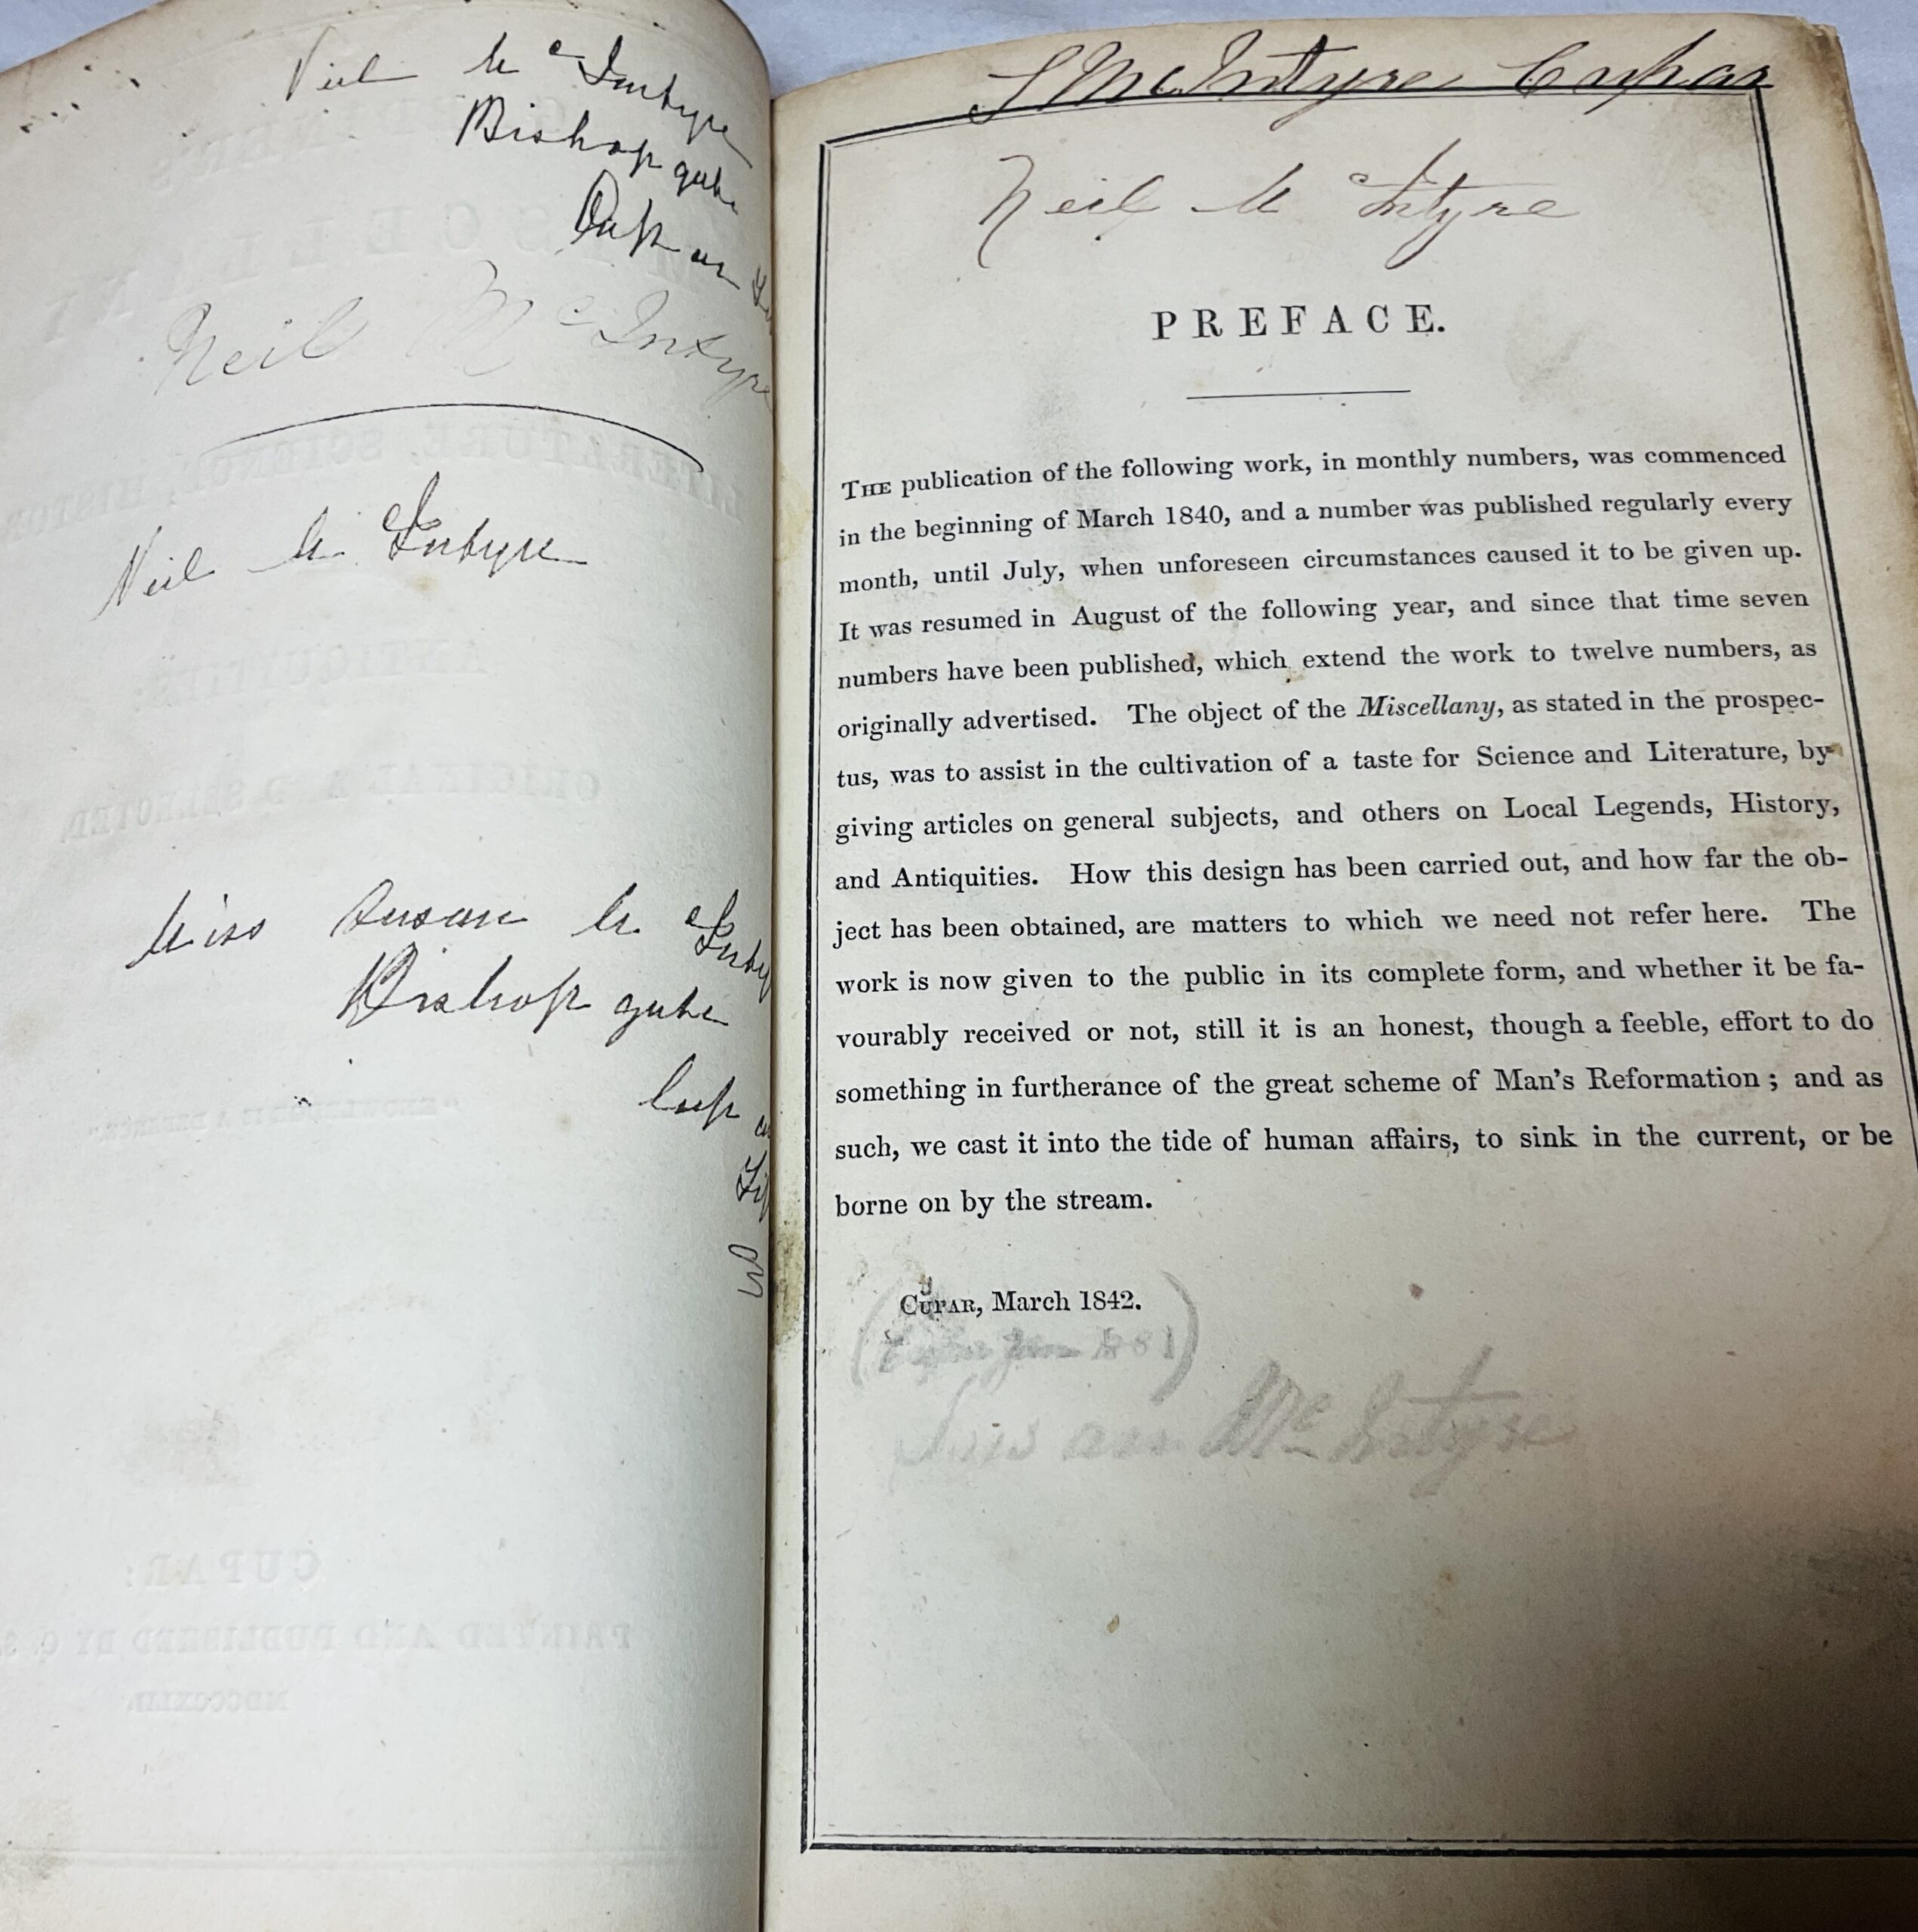 Neil Mc Intyre
Bishop gate
Cupar
Neil Mc Intyre
Neil Mc Intyre
Miss Susan Mc Inty
Bishop gate
Cup
S McIntyre Cupar
Neil Mc Intyre
PREFACE.
THE publication of the following work, in monthly numbers, was commenced
in the beginning of March 1840, and a number was published regularly every
month, until July, when unforeseen circumstances caused it to be given up.
It was resumed in August of the following year, and since that time seven
numbers have been published, which extend the work to twelve numbers, as
originally advertised. The object of the Miscellany, as stated in the prospec-
tus, was to assist in the cultivation of a taste for Science and Literature, by
giving articles on general subjects, and others on Local Legends, History,
and Antiquities. How this design has been carried out, and how far the ob-
ject has been obtained, are matters to which we need not refer here. The
work is now given to the public in its complete form, and whether it be fa-
vourably received or not, still it is an honest, though a feeble, effort to do
something in furtherance of the great scheme of Man's Reformation; and as
such, we cast it into the tide of human affairs, to sink in the current, or be
borne on by the stream.
CUPAR, March 1842.
1881)
Mc Intyre